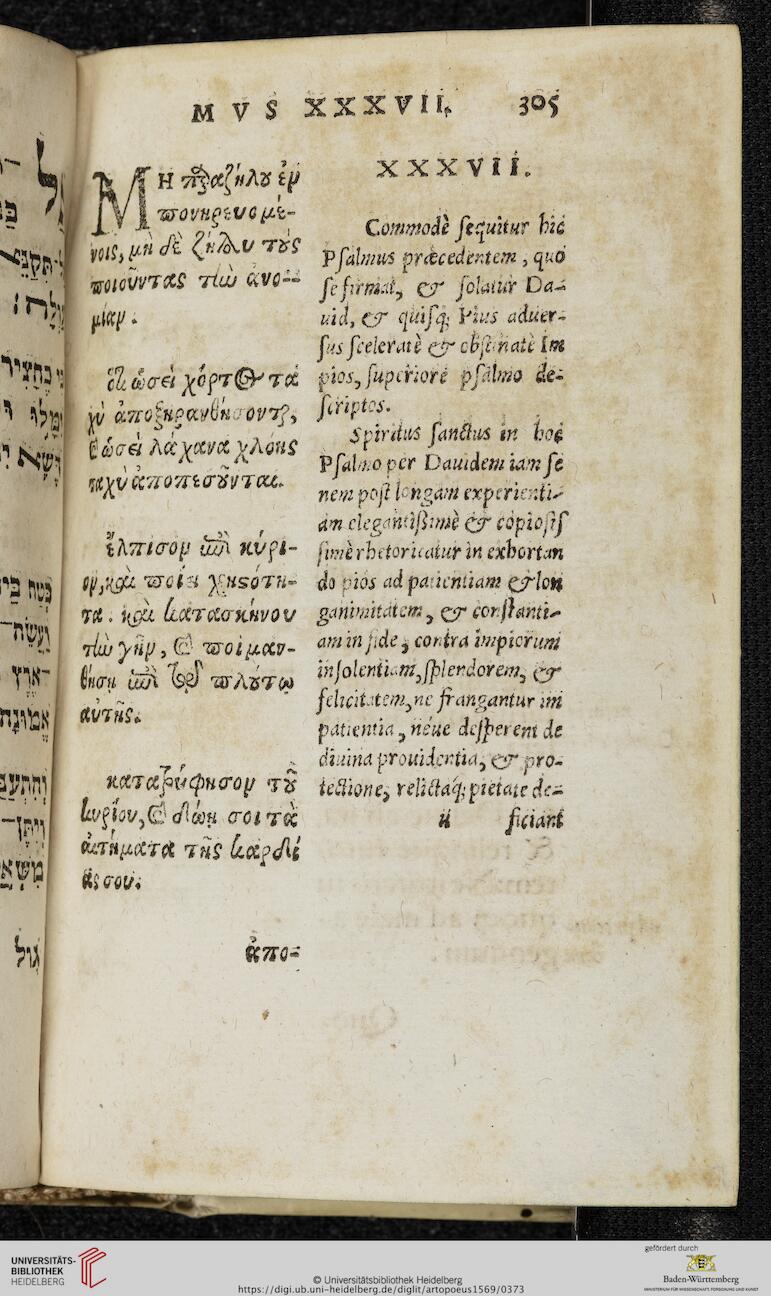 MVS XXXVII.
305
ΜΗ παραζήλου ἐν
πονηρευομέ-
νοις, μὴ δὲ ζήλου τοὺς
ποιοῦντας τὴν ἀνο-
μίαν.
ὅτι ὡσεὶ χόρτος τα
χὺ ἀποξηρανθήσονται,
καὶ ὡσεὶ λάχανα χλόης
ταχὺ ἀποπεσοῦνται.
ἔλπισον ἐπὶ κύρι-
ον, καὶ ποίει χρηστότη-
τα. καὶ κατασκήνου
τὴν γῆν, καὶ ποιμαν-
θήσῃ ἐπὶ τῷ πλούτῳ
αὐτῆς.
κατατρύφησον τοῦ
κυρίου, καὶ δώῃ σοι τὰ
αἰτήματα τῆς καρδί
ας σου.
ἀπο-
XXXVII.
Commodè sequitur hic
Psalmus præcedentem, quo
se firmat, & solatur Da-
uid, & quisq; Pius aduer-
sus sceleratè & obstinatè Im
pios, superiore psalmo de-
scriptos.
Spiritus sanctus in hoc
Psalmo per Dauidem iam se
nem post longam experienti-
am elegantißimè & copiosis
simè rhetoricatur in exhortan
do pios ad patientiam & lon
ganimitatem, & constanti-
am in fide, contra impiorum
insolentiam, splendorem, &
felicitatem, ne frangantur im
patientia, néue desperent de
diuina prouidentia, & pro-
tectione, relictaq; pietate de-
ij ficiant
גול
UNIVERSITÄTS-
BIBLIOTHEK
HEIDELBERG
© Universitätsbibliothek Heidelberg
https://digi.ub.uni-heidelberg.de/diglit/artopoeus1569/0373
gefördert durch
Baden-Württemberg
MINISTERIUM FÜR WISSENSCHAFT, FORSCHUNG UND KUNST